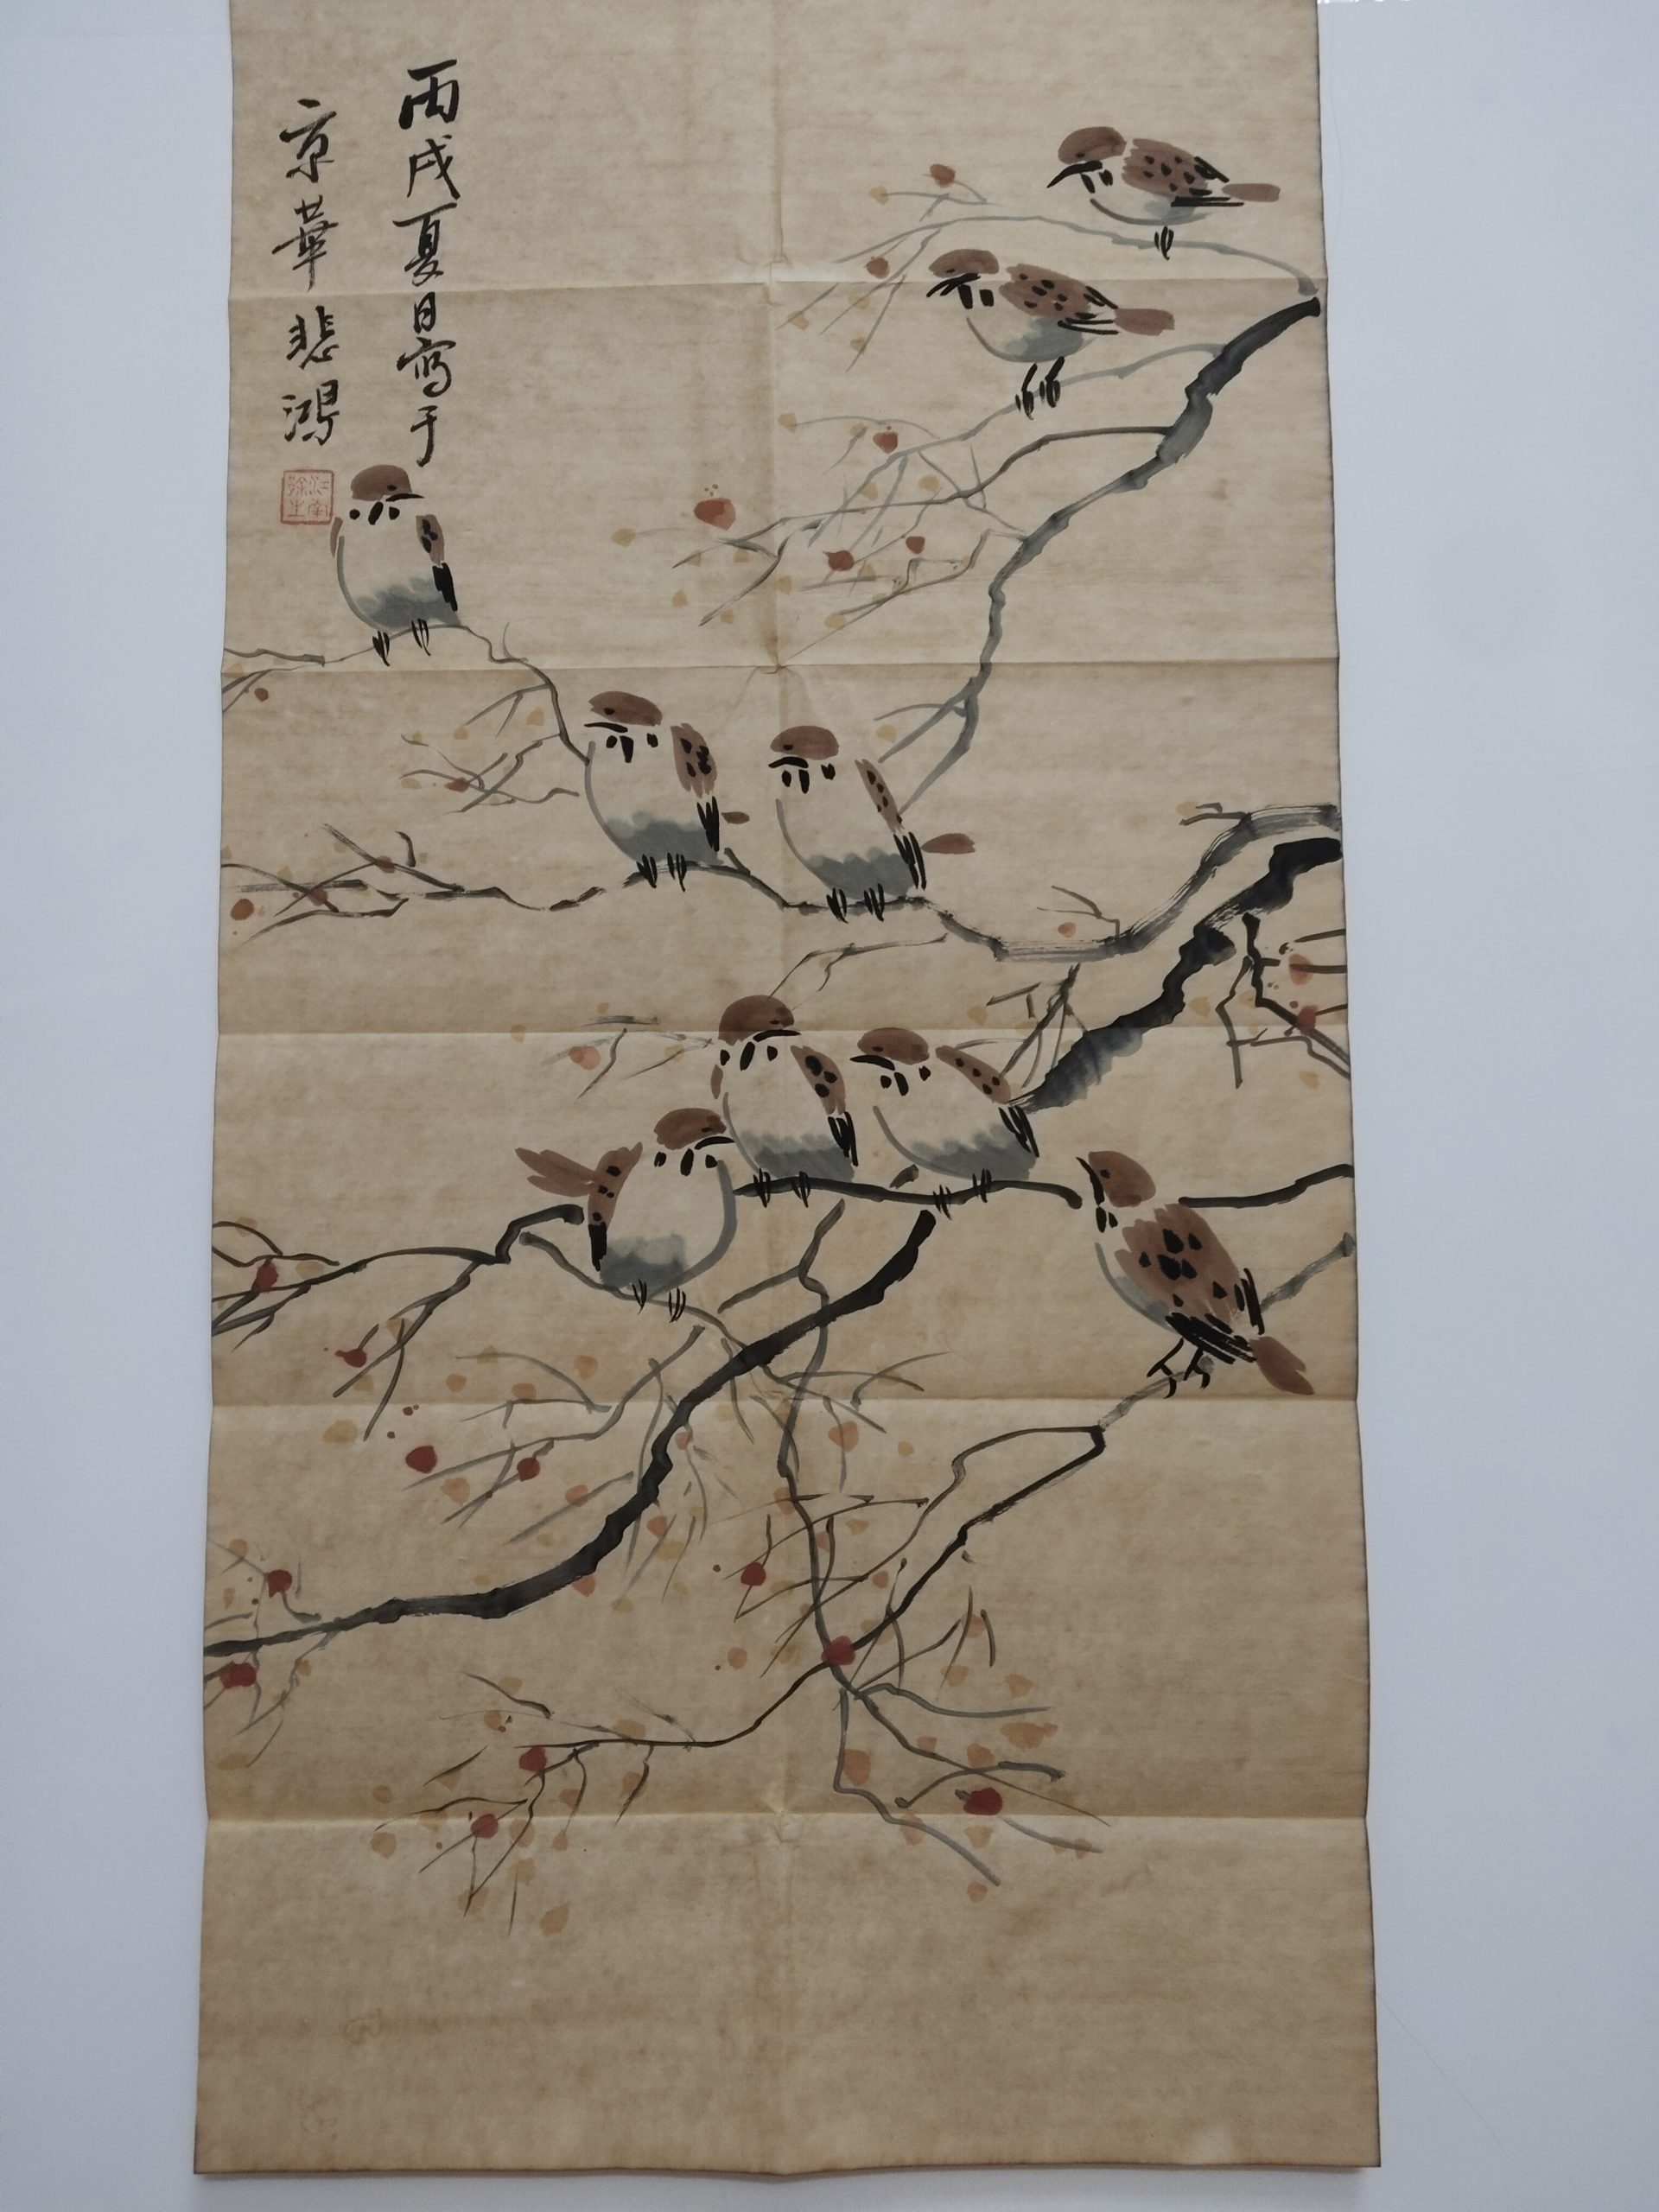 丙戌夏日寫于
京華 悲鴻
江南徐生